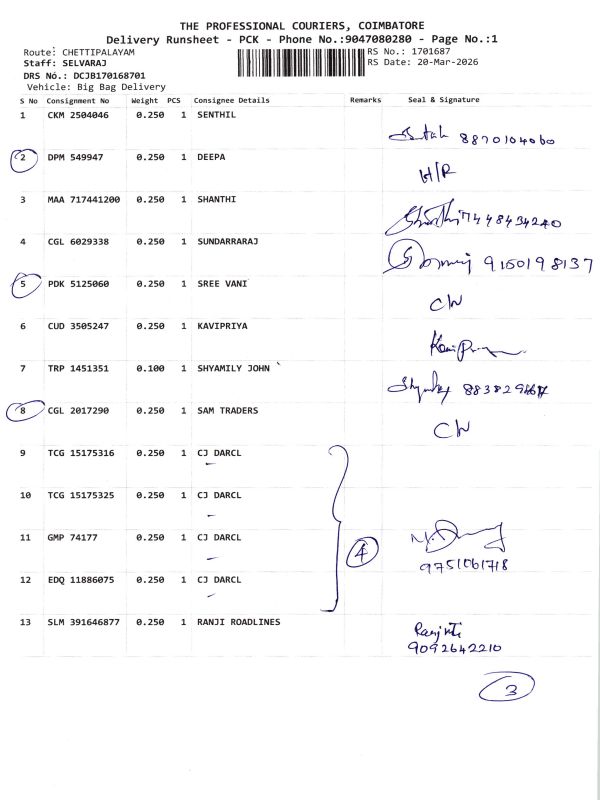 THE PROFESSIONAL COURIERS, COIMBATORE
Delivery Runsheet - PCK - Phone No.:9047080280 - Page No.:1
Route: CHETTIPALAYAM RS No.: 1701687
Staff: SELVARAJ RS Date: 20-Mar-2026
DRS No.: DCJB170168701
Vehicle: Big Bag Delivery
S No Consignment No Weight PCS Consignee Details Remarks Seal & Signature
1 CKM 2504046 0.250 1 SENTHIL
8870104060
2 DPM 549947 0.250 1 DEEPA
H/R
3 MAA 717441200 0.250 1 SHANTHI
Shanthi 7448434240
4 CGL 6029338 0.250 1 SUNDARRARAJ
9150198137
5 PDK 5125060 0.250 1 SREE VANI
CW
6 CUD 3505247 0.250 1 KAVIPRIYA
7 TRP 1451351 0.100 1 SHYAMILY JOHN
8 CGL 2017290 0.250 1 SAM TRADERS
CW
9 TCG 15175316 0.250 1 CJ DARCL
10 TCG 15175325 0.250 1 CJ DARCL
11 GMP 74177 0.250 1 CJ DARCL
4
9751061718
12 EDQ 11886075 0.250 1 CJ DARCL
13 SLM 391646877 0.250 1 RANJI ROADLINES
Ranjith
9092642210
3